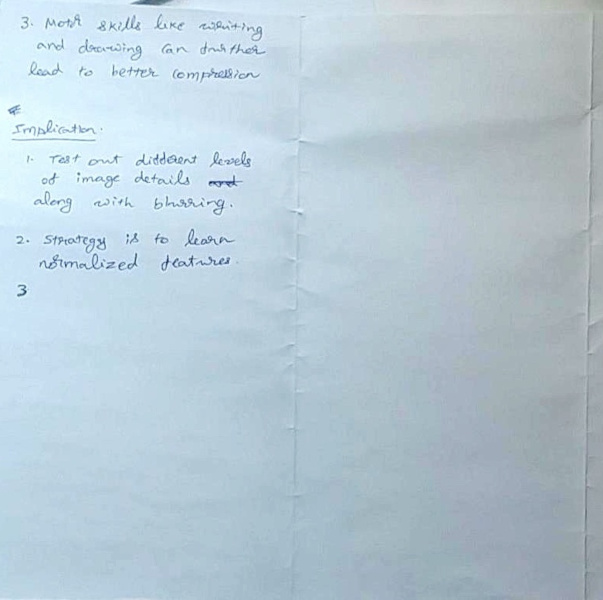 3. Motor skills like writing
and drawing can further
lead to better compression
Implication.
1. Test out different levels
of image details and
along with blurring.
2. Strategy is to learn
normalized features.
3